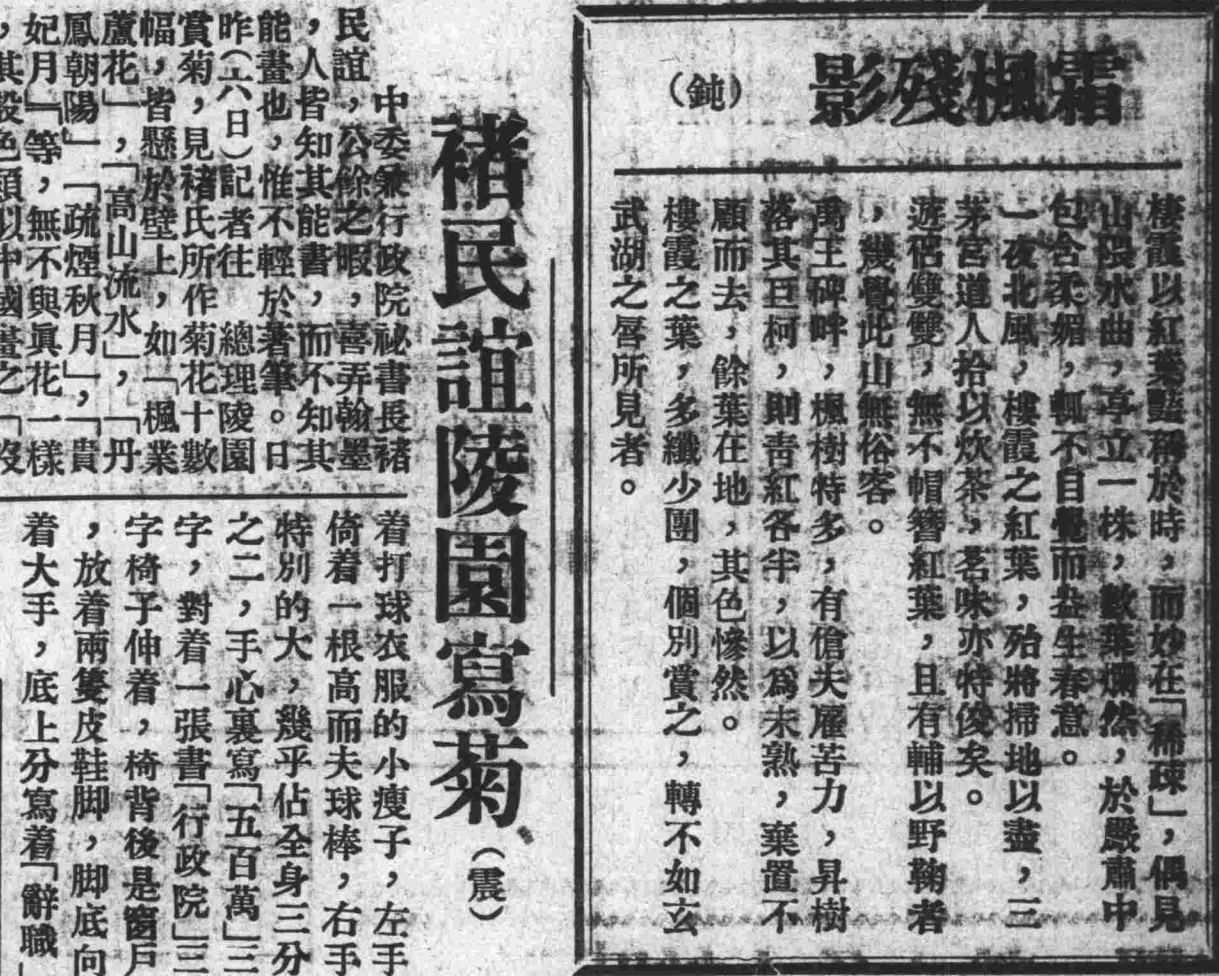 霜楓殘影
（鈍）
棲霞以紅葉豔稱於時，而妙在「稀疎」，偶見
山隈水曲，亭立一株，數葉爛然，於嚴肅中
包含柔媚，輒不自覺而益生春意。
一夜北風，棲霞之紅葉，殆將掃地以盡，三
茅宮道人拾以炊茶，茗味亦特俊矣。
遊侶雙雙，無不帽簪紅葉，且有輔以野鞠者
，幾覺此山無俗客。
禹王碑畔，楓樹特多，有傖夫雇苦力，昇樹
落其巨柯，則靑紅各半，以爲未熟，棄置不
顧而去，餘葉在地，其色慘然。
棲霞之葉，多纖少團，個別賞之，轉不如玄
武湖之唇所見者。
褚民誼陵園寫菊
（震）
中委兼行政院祕書長褚
民誼，公餘之暇，喜弄翰墨
，人皆知其能書，而不知其
能畫也，惟不輕於著筆。日
昨（六日）記者往　總理陵園
賞菊，見褚氏所作菊花十數
幅，皆懸於壁上，如「楓業
蘆花」，「高山流水」，「丹
鳳朝陽」「疏煙秋月」，「貴
妃月」等，無不與眞花一樣
，其設色頗似中國畫之「沒
着打球衣服的小瘦子，左手
倚着一根高而夫球棒，右手
特別的大，幾乎佔全身三分
之二，手心裏寫「五百萬」三
字，對着一張書「行政院」三
字椅子伸着，椅背後是窗戶
，放着兩隻皮鞋脚，脚底向
着大手，底上分寫着「辭職」